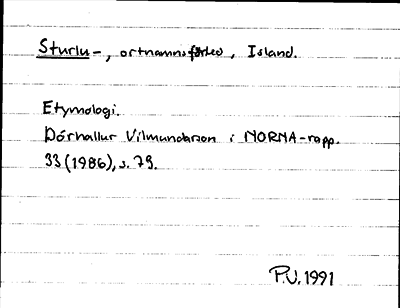 Sturlu-, ortnamnsförled, Island.
Etymologi.
Þórhallur Vilmundarson i NORNA-rapp.
33 (1986), s. 79.
P.V. 1991